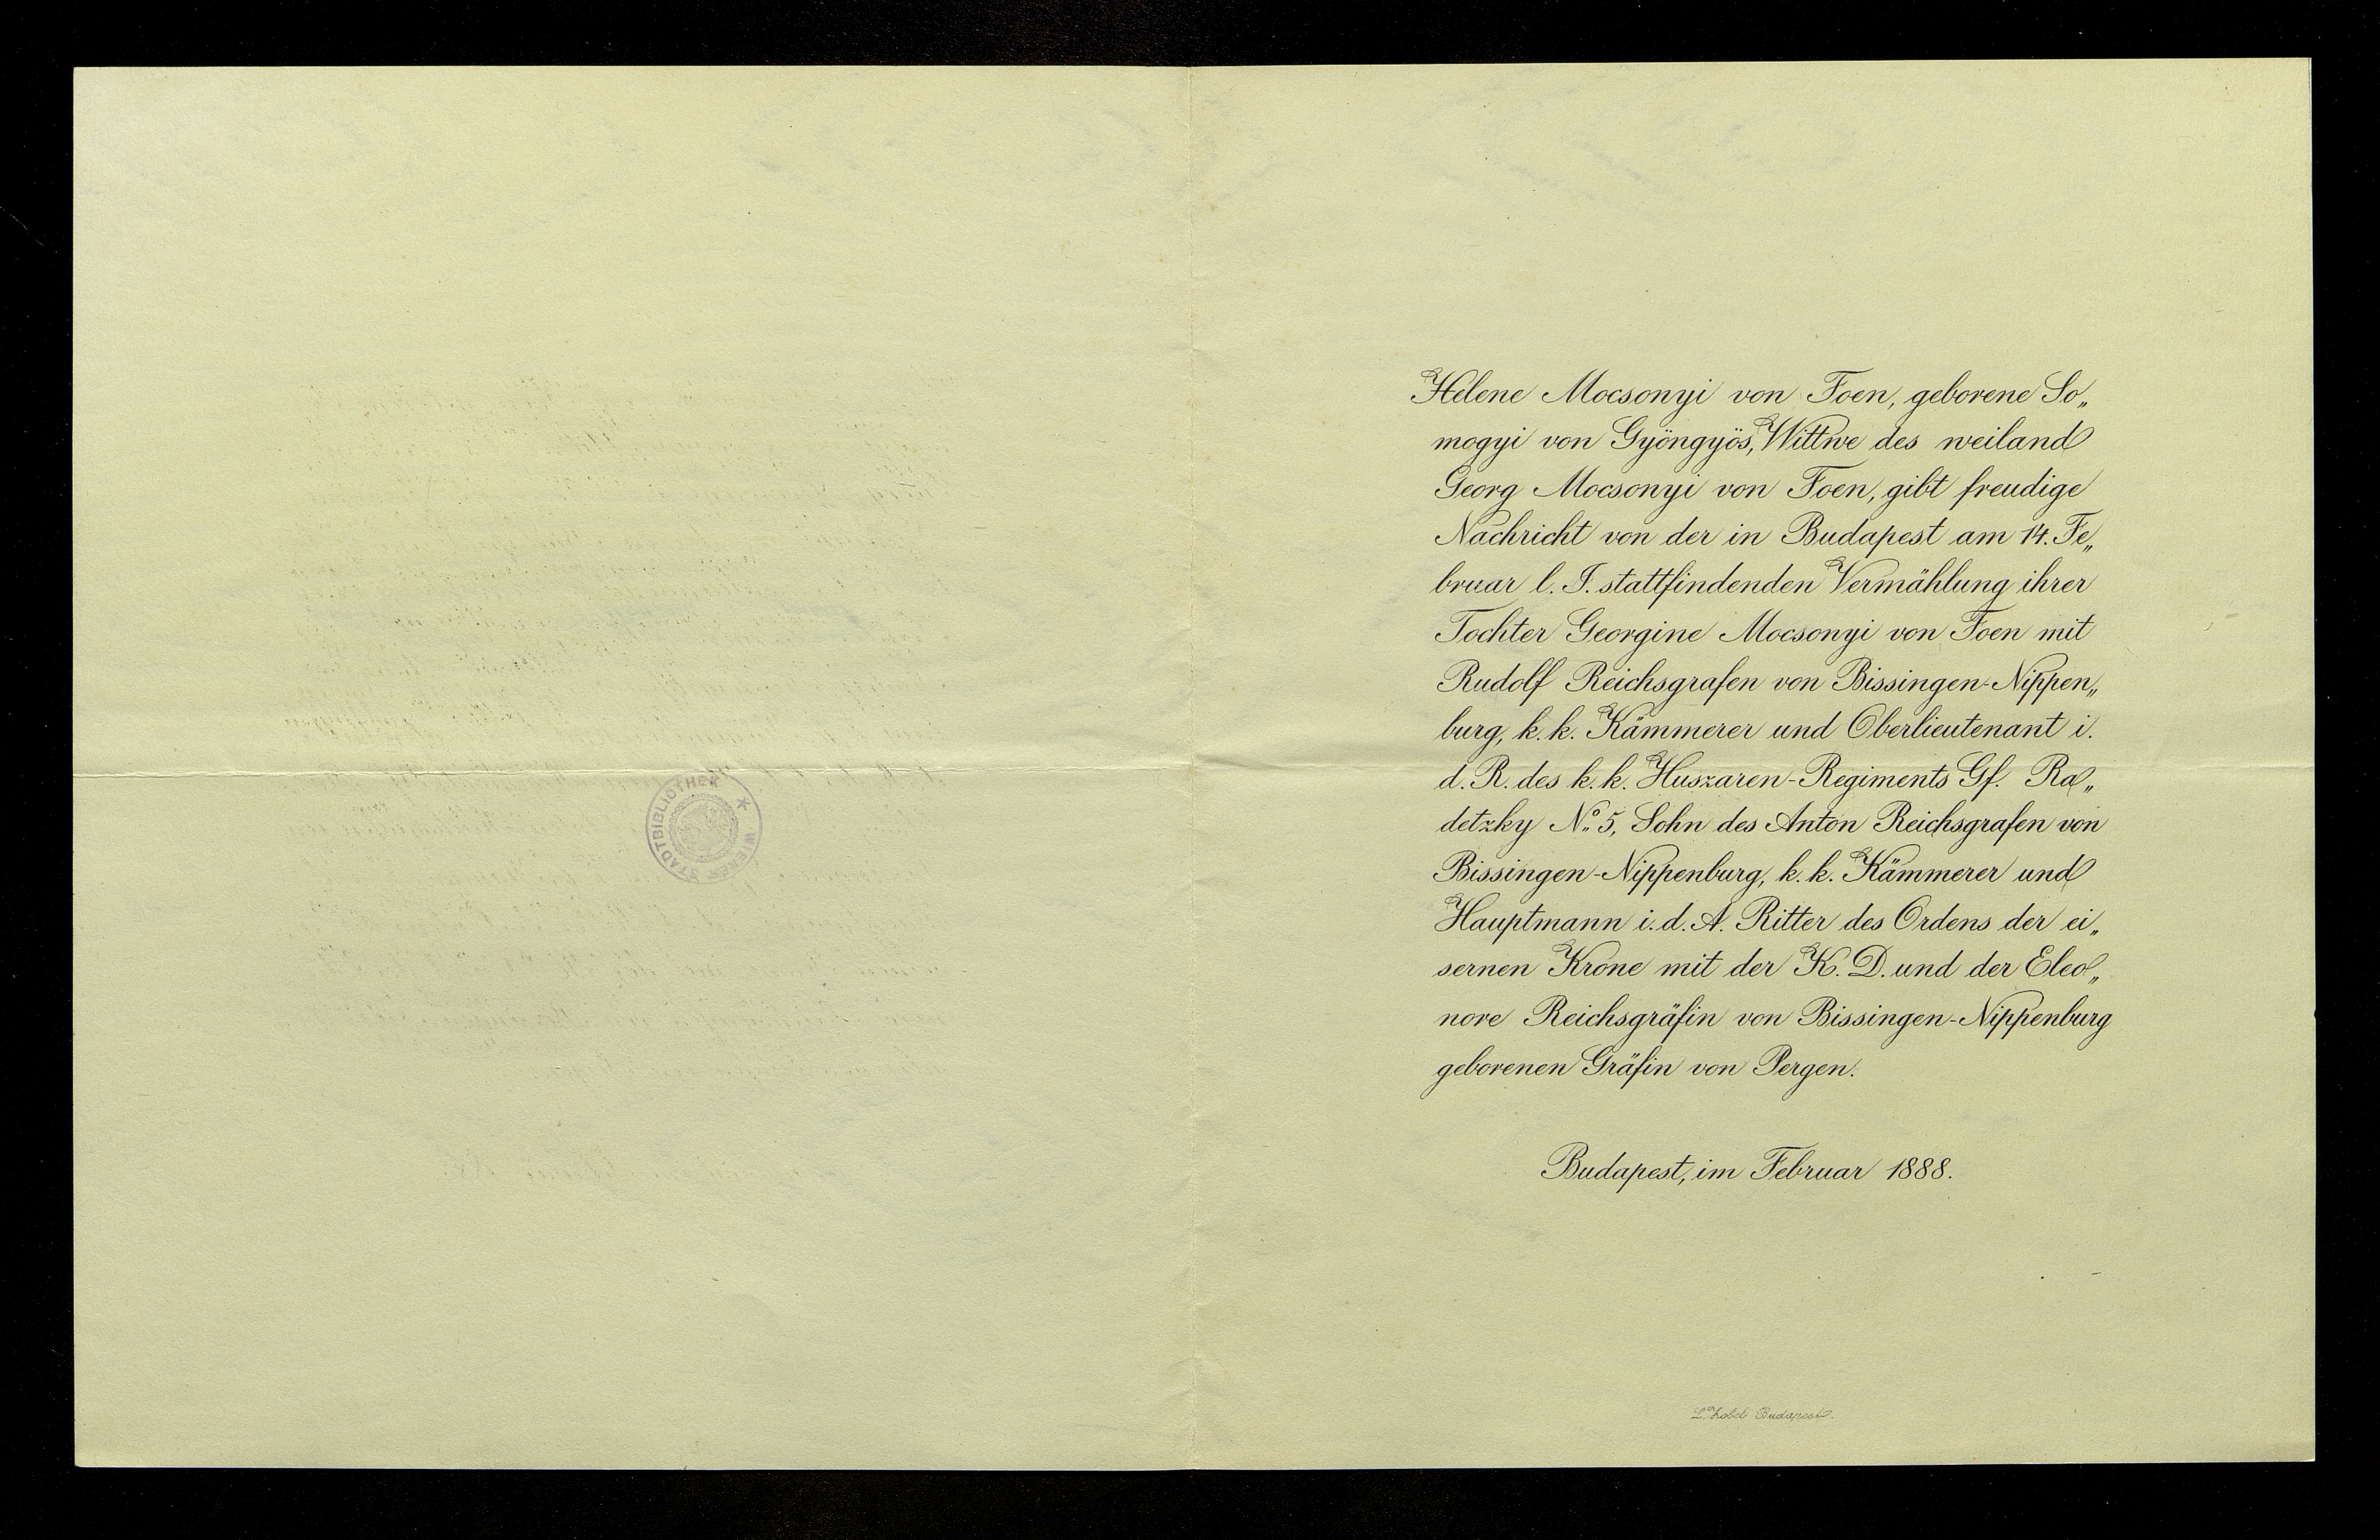 WIENER STADTBIBLIOTHEK
Helene Mocsonyi von Foen, geborene So„
mogyi von Gyöngyös, Wittwe des weiland
Georg Mocsonyi von Foen, gibt freudige
Nachricht von der in Budapest am 14. Fe„
bruar l. J. stattfindenden Vermählung ihrer
Tochter Georgine Mocsonyi von Foen mit
Rudolf Reichsgrafen von Bissingen-Nippen„
burg, k. k. Kämmerer und Oberlieutenant i.
d. R. des k. k. Huszaren-Regiments Gf. Ra„
detzky No. 5, Sohn des Anton Reichsgrafen von
Bissingen-Nippenburg, k. k. Kämmerer und
Hauptmann i. d. A. Ritter des Ordens der ei„
sernen Krone mit der K. D. und der Eleo„
nore Reichsgräfin von Bissingen-Nippenburg
geborenen Gräfin von Pergen.
Budapest, im Februar 1888.
L. Zobel Budapest.